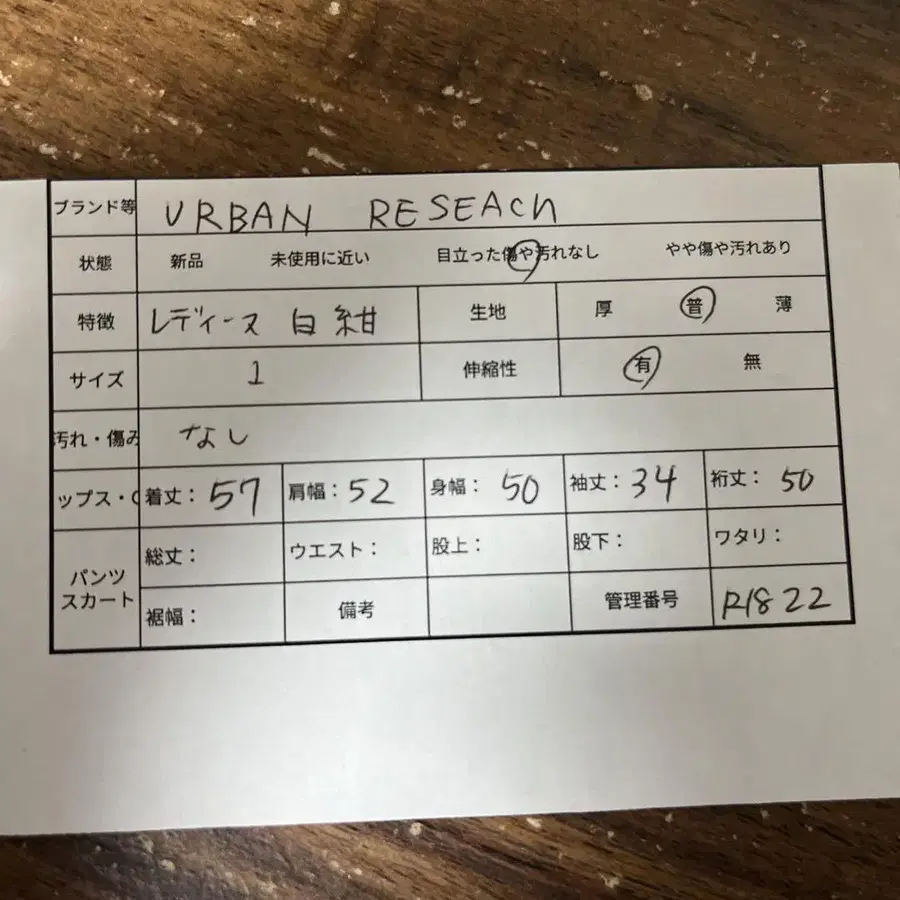 ブランド等 URBAN RESEACh
状態 新品 未使用に近い 目立った傷や汚れなし やや傷や汚れあり
特徴 レディース 白紺 生地 厚 普 薄
サイズ 1 伸縮性 有 無
汚れ・傷み なし
ップス・ 着丈: 57 肩幅: 52 身幅: 50 袖丈: 34 裄丈: 50
パンツ スカート 総丈: ウエスト: 股上: 股下: ワタリ:
裾幅: 備考 管理番号 R1822